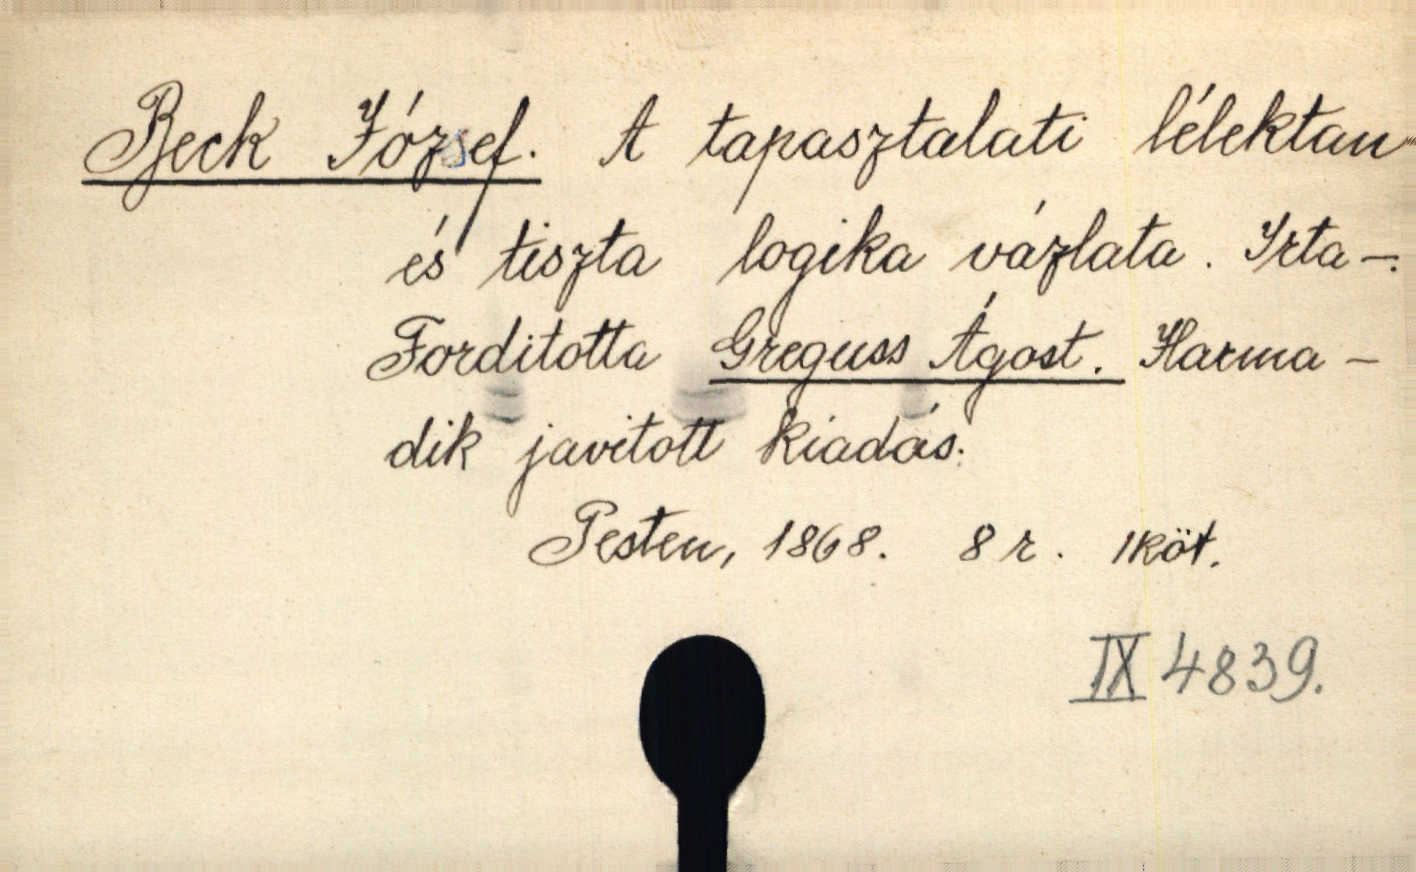 Beck József. A tapasztalati lélektan
és tiszta logika vázlata. Irta –.
Forditotta Greguss Ágost. Harma –
dik javitott kiadás.
Pesten, 1868. 8 r. 1 köt.
IX 4839.